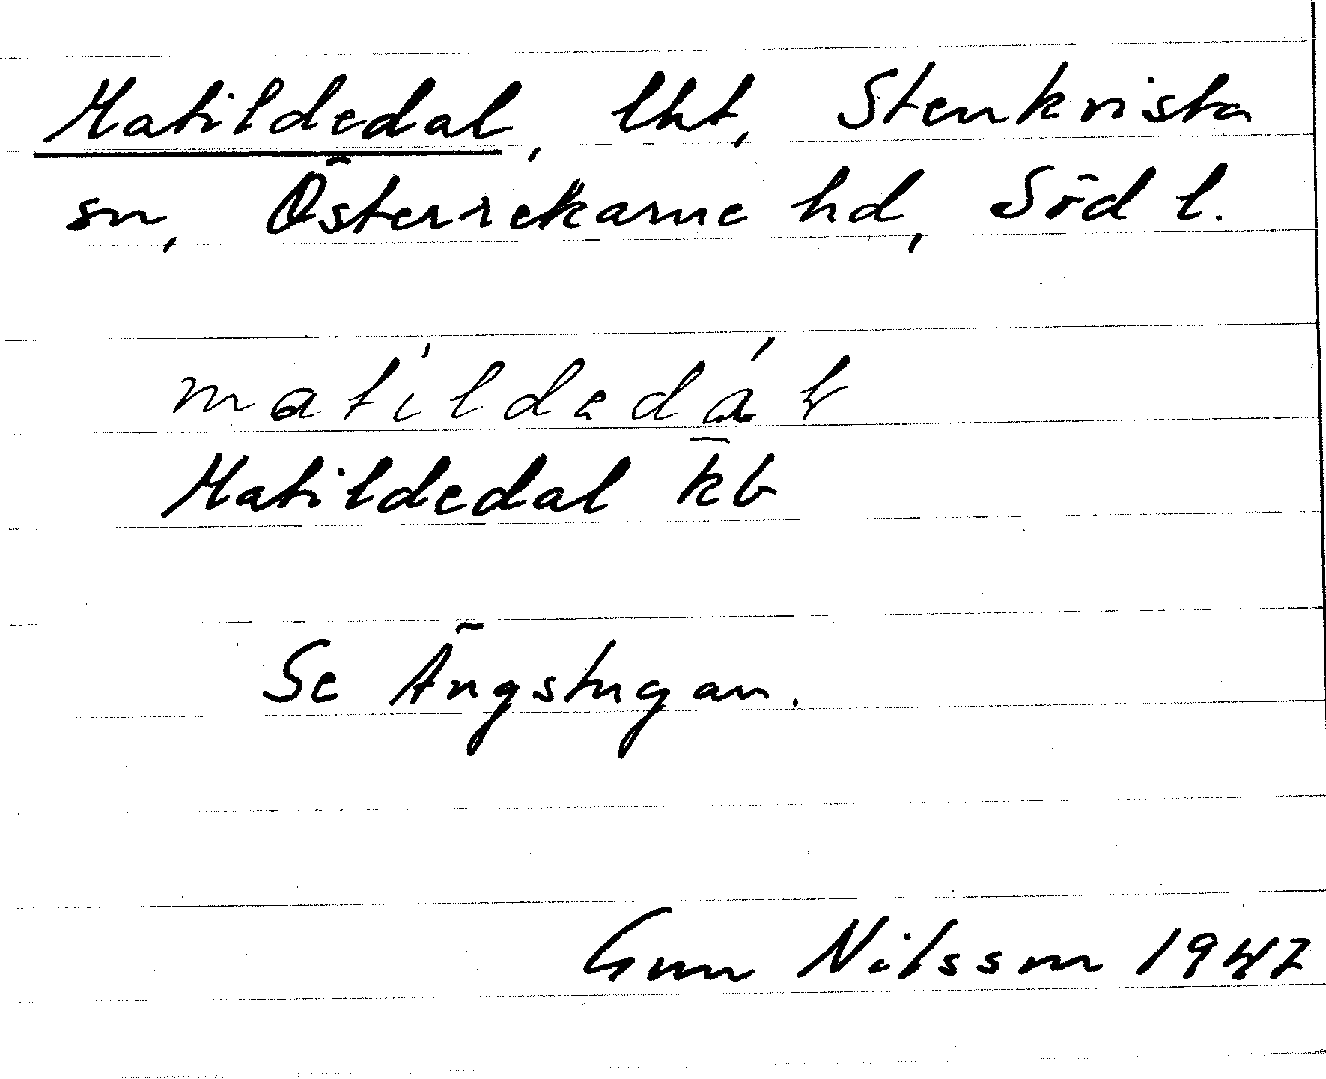 Matildedal, lht, Stenkvista
sn, Österrekarne hd, Söd l.
matildedál
Matildedal kb
Se Ängstugan.
Gun Nilsson 1947